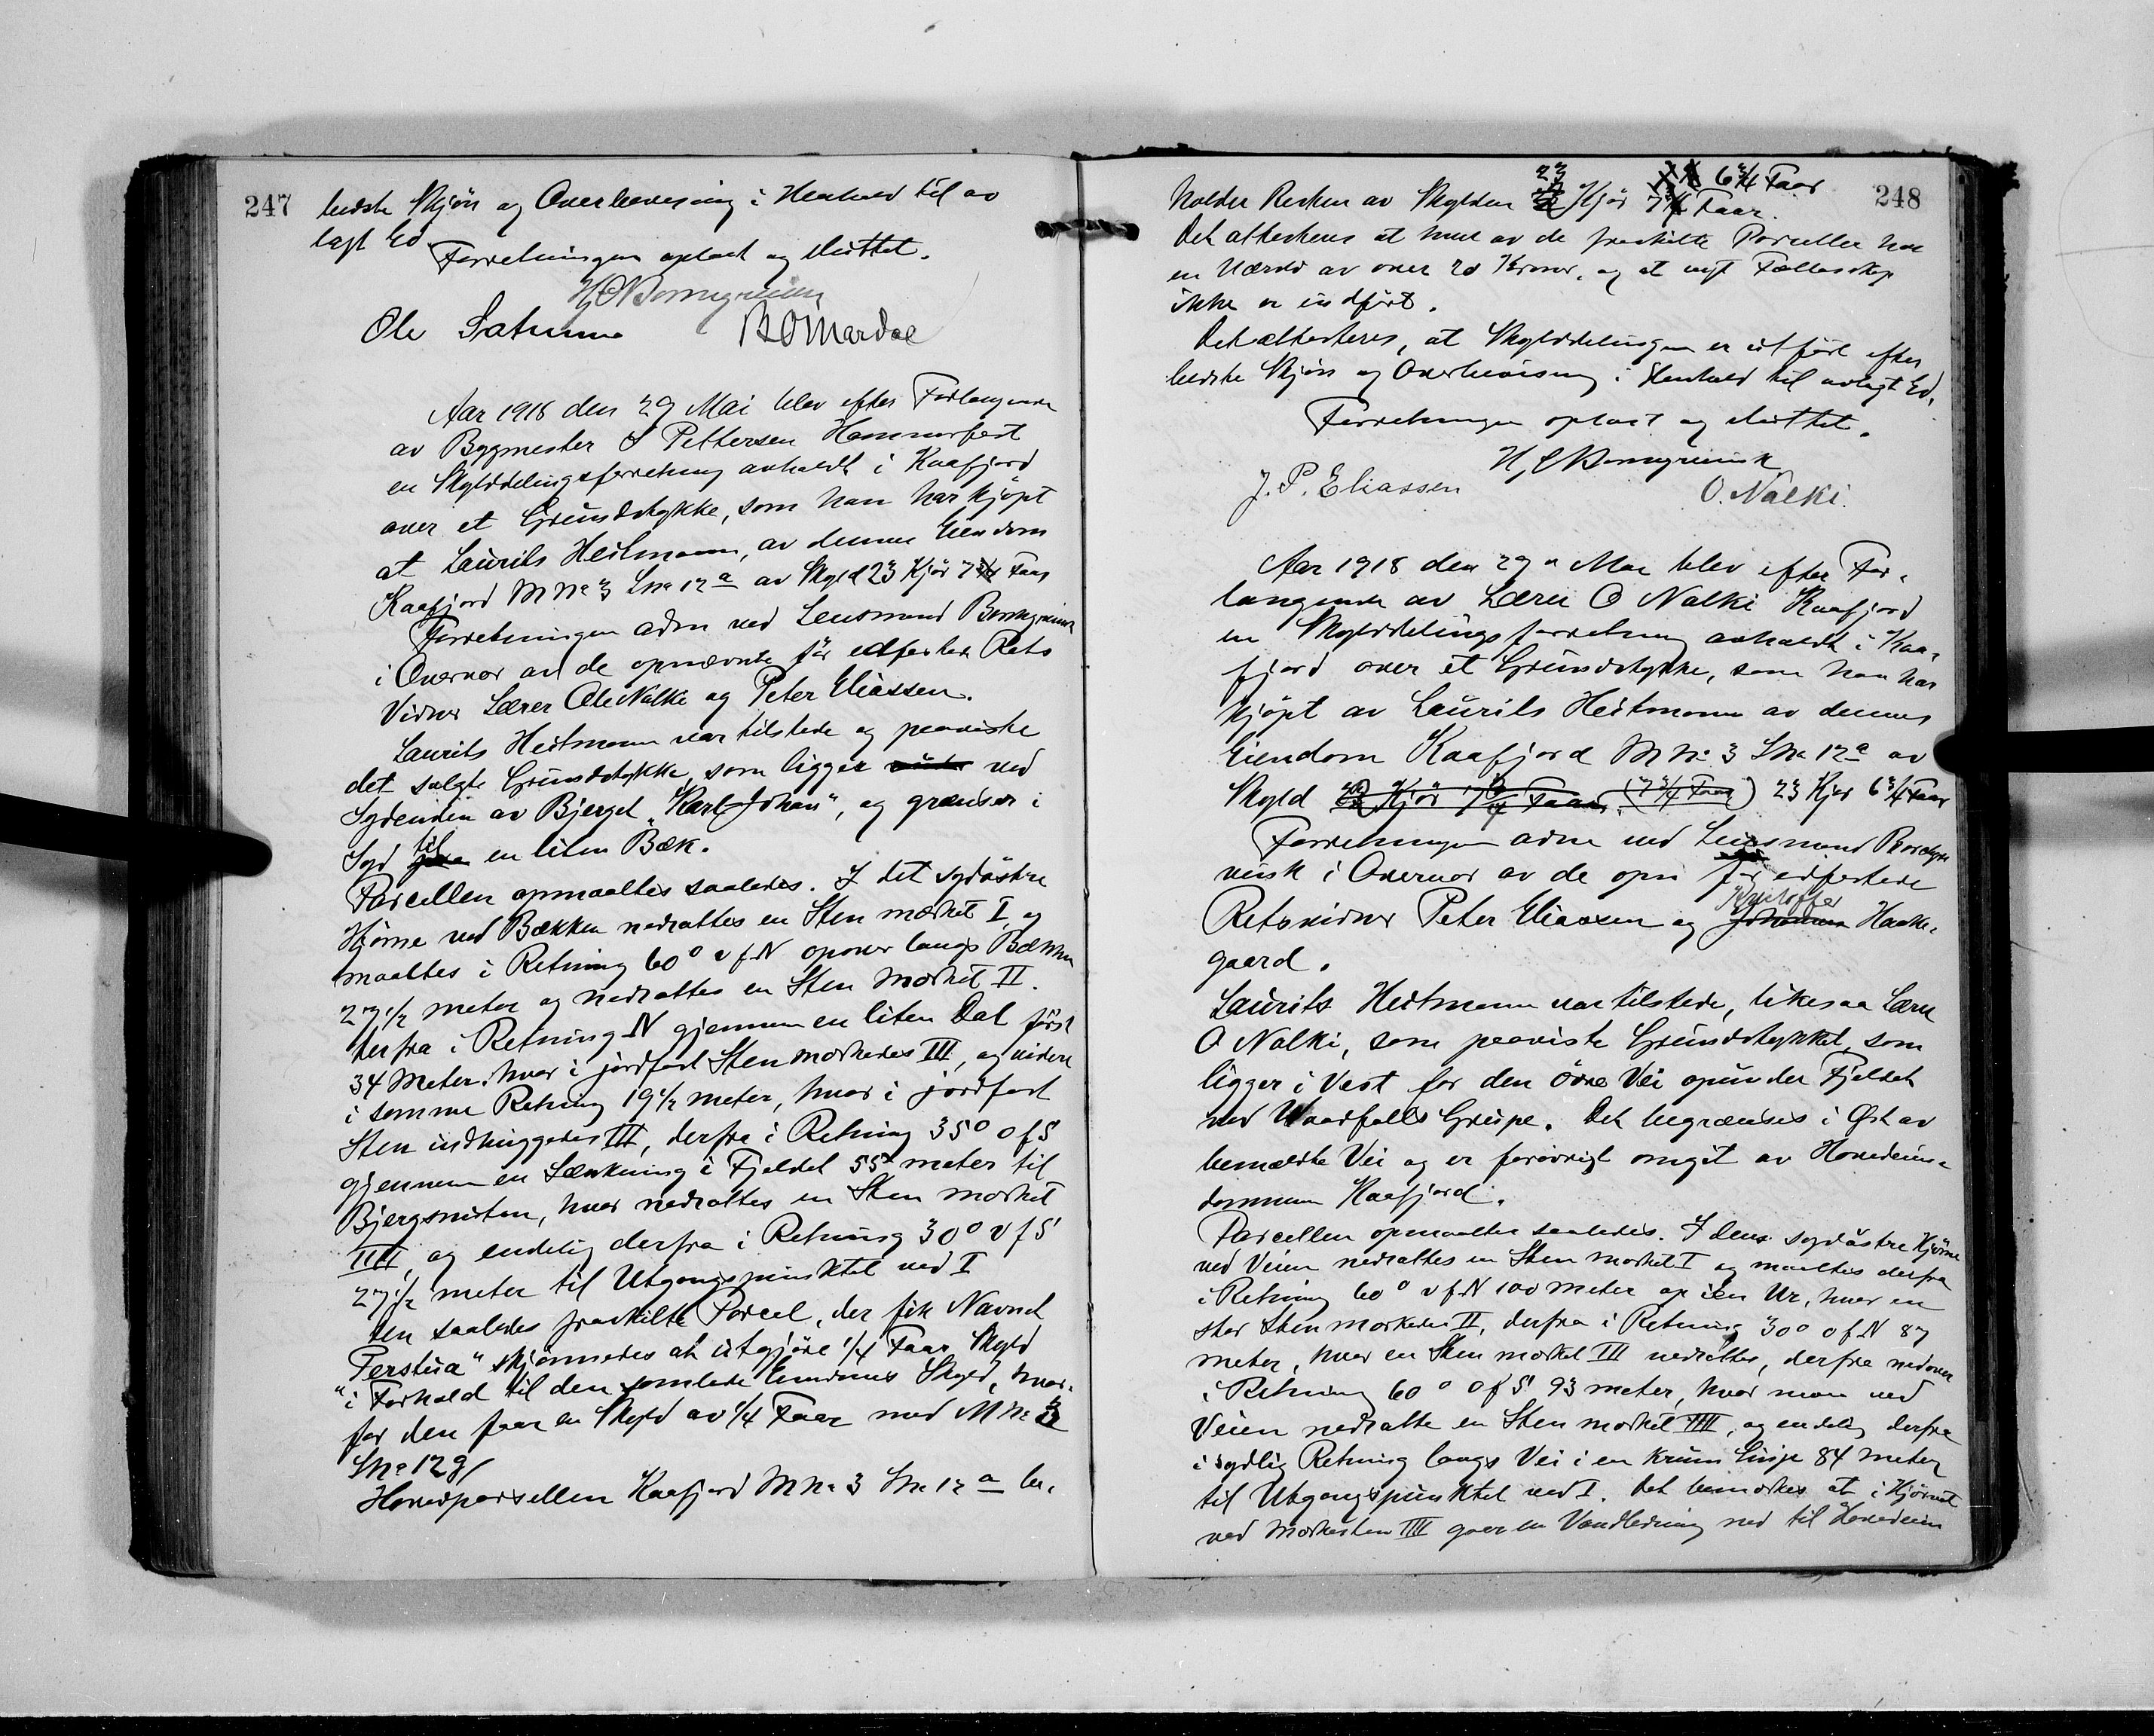 247
bedste Skjön og Overbevisning i Henhold til av
lagt Ed.
Forretningen oplæst og sluttet.
Ole
Aar 1918 den 29 Mai blev efter Forlangende
av Bygmester S Pettersen Hammerfest
en Skylddelingsforretning avholdt i Kaafjord
over et Grundstykke, som han har kjöpt
at Laurits Heitmann, av dennes Eiendom
Kaafjord M No 3 L No 12 a av Skyld 23 Kjör 7 3/4 Faar
Forretningen adm ved Lensmand
i Overvær av de opnævnte för edfestede Rets
Vidner Lærer Ole Nalki og Peter Eliassen.
Laurits Heitmann var tilstede og paaviste
det solgte Grundstykke, som ligger ved
Sydenden av Bjerget "Karl Johan", og grænser i
Syd til en liten Bæk.
Parcellen opmaaltes saaledes. I det sydöstre
Hjörne ved Bækken nedsattes en Sten mærket I, og
maaltes i Retning 60° v f N opover langs Bækken
27 1/2 meter og nedsattes en Sten mærket II.
derfra i Retning N gjennem en liten Dal först
34 Meter, hvor i jordfast Sten mærkedes III, og videre
i samme Retning 19 1/2 meter, hvor i jordfast
Sten indhuggedes III, derfra i Retning 35° o f S
gjennem en Sænkning i Fjeldet 55 meter til
Bjergsnuten, hvor nedsattes en Sten mærket
IIII, og endelig derfra i Retning 30° v f S
27 1/2 meter til Utgangspunktet ved I
Den saaledes fraskilte Parcel, der fik Navnet
"Perstua" skjönnedes at utgjöre 1/4 Faar Skyld
i Forhold til den samlede Eiendoms Skyld, hvor-
for den faar en Skyld av 1/4 Faar med M No 3
L No 12 g/
Hovedparsellen Kaafjord M No 3 L No 12 a be-
248
23 6 3/4 Faar
holder Resten av Skylden Kjör 7 3/4 Faar.
Det attesteres at hver av de fraskilte Parceller har
en Værdi av over 20 Kroner, og at nyt Fællesskap
ikke er indfört.
Det attesteres, at Skylddelingen er utfört efter
bedste Skjön og Overbevisning i Henhold til avlagt Ed.
Forretningen oplæst og sluttet.
J. P. Eliassen
O. Nalki.
Aar 1918 den 29 Mai blev efter For-
langende av Lærer O Nalki Kaafjord
en Skylddelingsforretning avholdt i Kaa-
fjord over et Grundstykke, som han har
kjöpt av Laurits Heitmann av dennes
Eiendom Kaafjord M No 3 L No 12 a av
Skyld Kjör 7 3/4 Faar (7 3/4 Faar) 23 Kjör 6 3/4 Faar
Forretningen adm ved Lensmand
i Overvær av de opn för edfestede
Retsvidner Peter Eliassen og Kristoffer Haake-
gaard.
Laurits Heitmann var tilstede, likesaa Lærer
O Nalki, som paaviste Grundstykket, som
ligger i Vest for den övre Vei opunder Fjeldet
ved Grupe. Det begrænses i Øst av
bemældte Vei og er forövrigt omgit av Hovedeien-
dommen Kaafjord.
Parcellen opmaaltes saaledes. I den sydöstre Hjörne
ved Veien nedsattes en Sten mærket I og maaltes derfra
i Retning 60° v f N 100 meter op i en Ur, hvor en
stor Sten mærkedes II, derfra i Retning 30° o f N 87
meter, hvor en Sten mærket III nedsattes, derfra nedover
i Retning 60° o f S 93 meter, hvor man ved
Veien nedsatte en Sten mærket IIII, og endelig derfra
i sydlig Retning langs Vei i en krum Linje 84 meter
til Utgangspunktet ved I. Det bemærkes at i Hjörnet
ved Mærkesten IIII gaar en Vandledning ned til Hovedeien